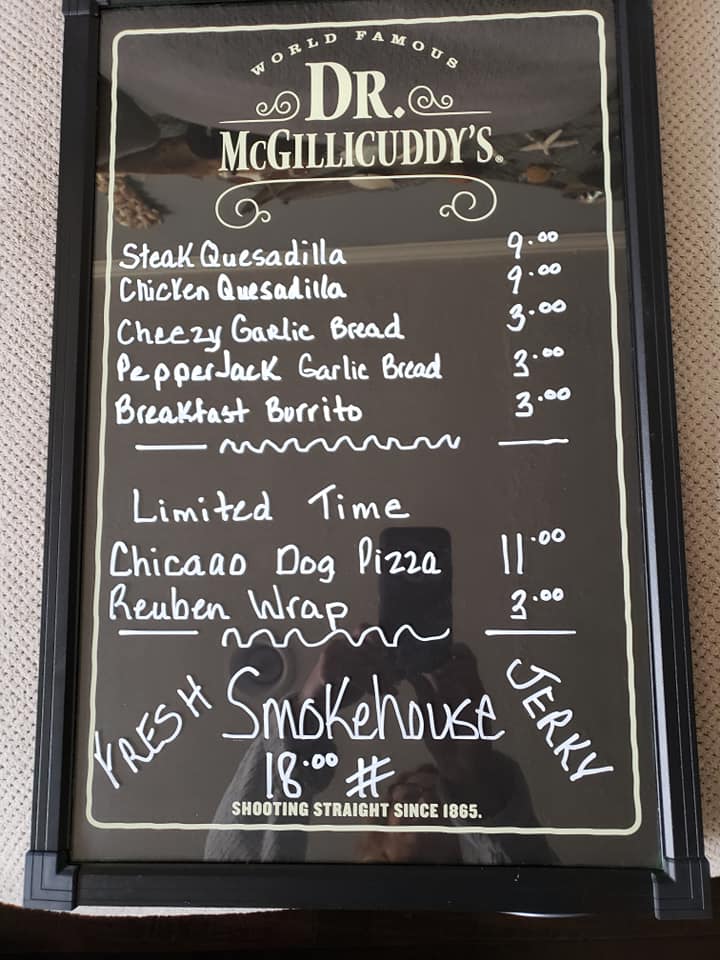 WORLD FAMOUS
DR.
McGILLICUDDY'S®
Steak Quesadilla 9.00
Chicken Quesadilla 9.00
Cheezy Garlic Bread 3.00
PepperJack Garlic Bread 3.00
Breakfast Burrito 3.00
Limited Time
Chicago Dog Pizza 11.00
Reuben Wrap 3.00
FRESH Smokehouse JERKY
18.00 #
SHOOTING STRAIGHT SINCE 1865.